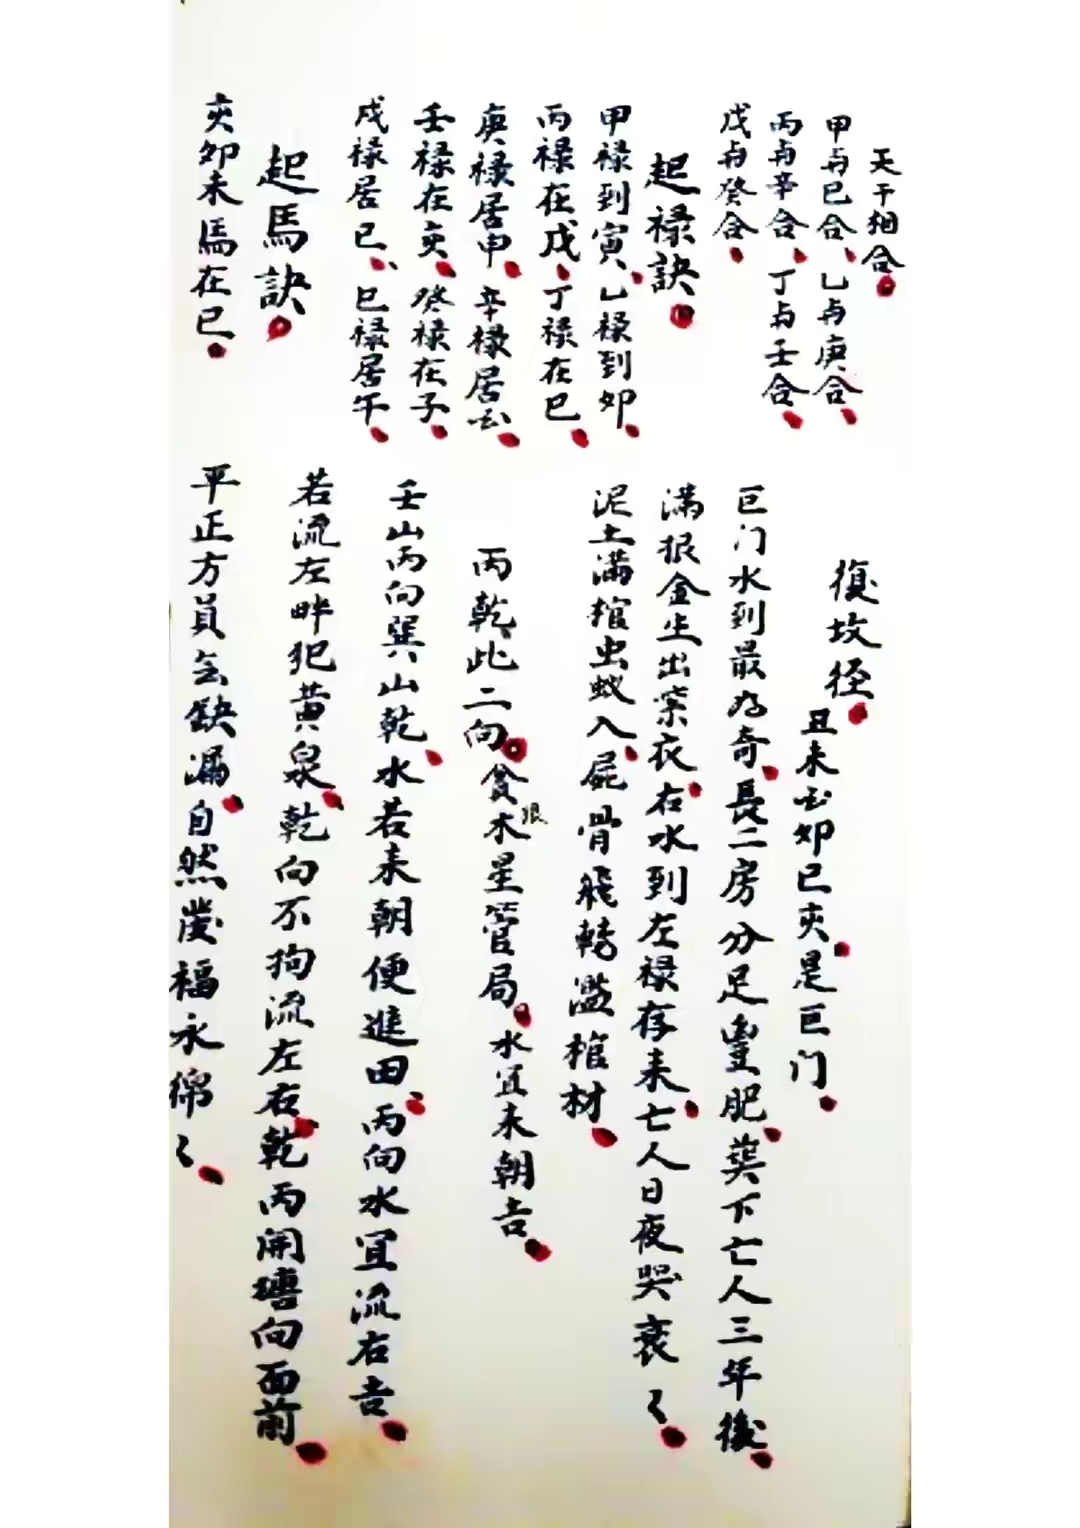 天干相合
甲与己合乙与庚合
丙与辛合丁与壬合
戊与癸合
起禄訣
甲禄到寅乙禄到卯
丙禄在戊丁禄在巳
庚禄居申辛禄居酉
壬禄在亥癸禄在子
戍禄居已巳禄居午
起馬訣
亥卯未馬在巳
復坟径
丑未酉卯巳亥是巨门
巨门水到最为奇長二房分足豊肥葬下亡人三年後
满根金生出紫衣右水到左禄存来亡人日夜哭哀〻
泥土满棺虫蚁入屍骨飛轉濫棺材
丙乾此二向
食狼木星管局水宜来朝吉
壬山丙向巽山乾水若来朝便進田丙向水宜流右吉
若流左畔犯黄泉乾向不拘流左右乾丙開塘向面前
平正方員缺漏自然發福永綿〻